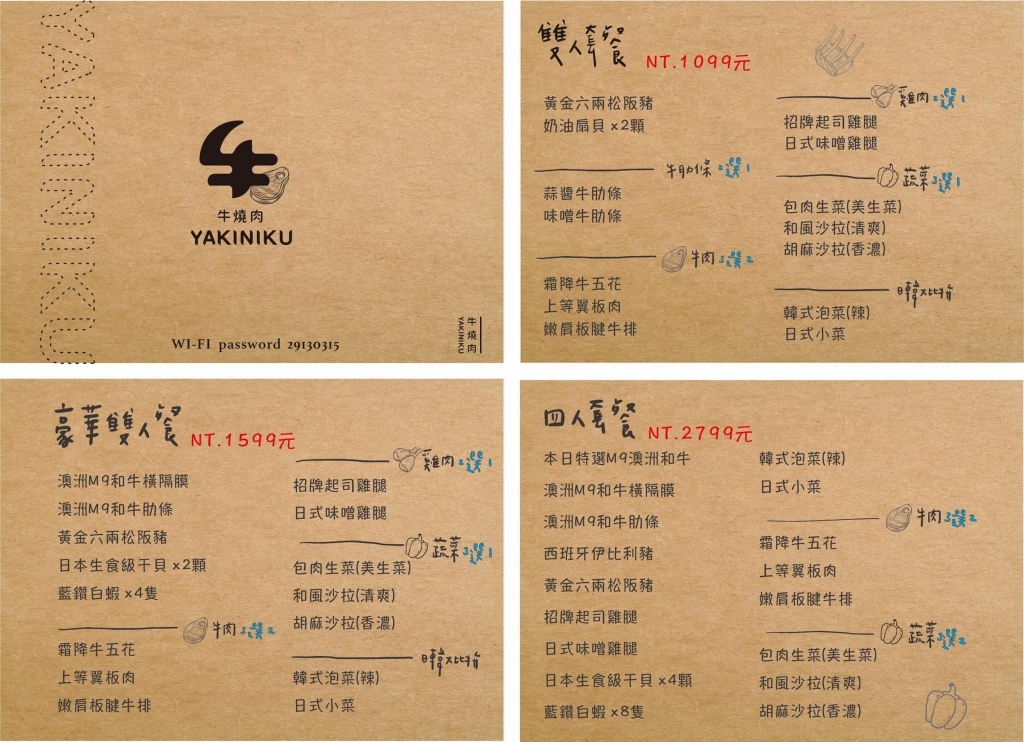 YAKINIKU
牛
牛燒肉
YAKINIKU
WI-FI password 29130315
牛燒肉
YAKINIKU
雙人套餐 NT.1099元
黃金六兩松阪豬
奶油扇貝 x2顆
牛肋條 2選1
蒜醬牛肋條
味噌牛肋條
牛肉 3選2
霜降牛五花
上等翼板肉
嫩肩板腱牛排
雞肉 2選1
招牌起司雞腿
日式味噌雞腿
蔬菜 3選1
包肉生菜(美生菜)
和風沙拉(清爽)
胡麻沙拉(香濃)
日韓大比拚
韓式泡菜(辣)
日式小菜
豪華雙人餐 NT.1599元
澳洲M9和牛橫隔膜
澳洲M9和牛肋條
黃金六兩松阪豬
日本生食級干貝 x2顆
藍鑽白蝦 x4隻
牛肉 3選2
霜降牛五花
上等翼板肉
嫩肩板腱牛排
雞肉 2選1
招牌起司雞腿
日式味噌雞腿
蔬菜 3選1
包肉生菜(美生菜)
和風沙拉(清爽)
胡麻沙拉(香濃)
日韓大比拚
韓式泡菜(辣)
日式小菜
四人套餐 NT.2799元
本日特選M9澳洲和牛
澳洲M9和牛橫隔膜
澳洲M9和牛肋條
西班牙伊比利豬
黃金六兩松阪豬
招牌起司雞腿
日式味噌雞腿
日本生食級干貝 x4顆
藍鑽白蝦 x8隻
韓式泡菜(辣)
日式小菜
牛肉 3選2
霜降牛五花
上等翼板肉
嫩肩板腱牛排
蔬菜 3選2
包肉生菜(美生菜)
和風沙拉(清爽)
胡麻沙拉(香濃)